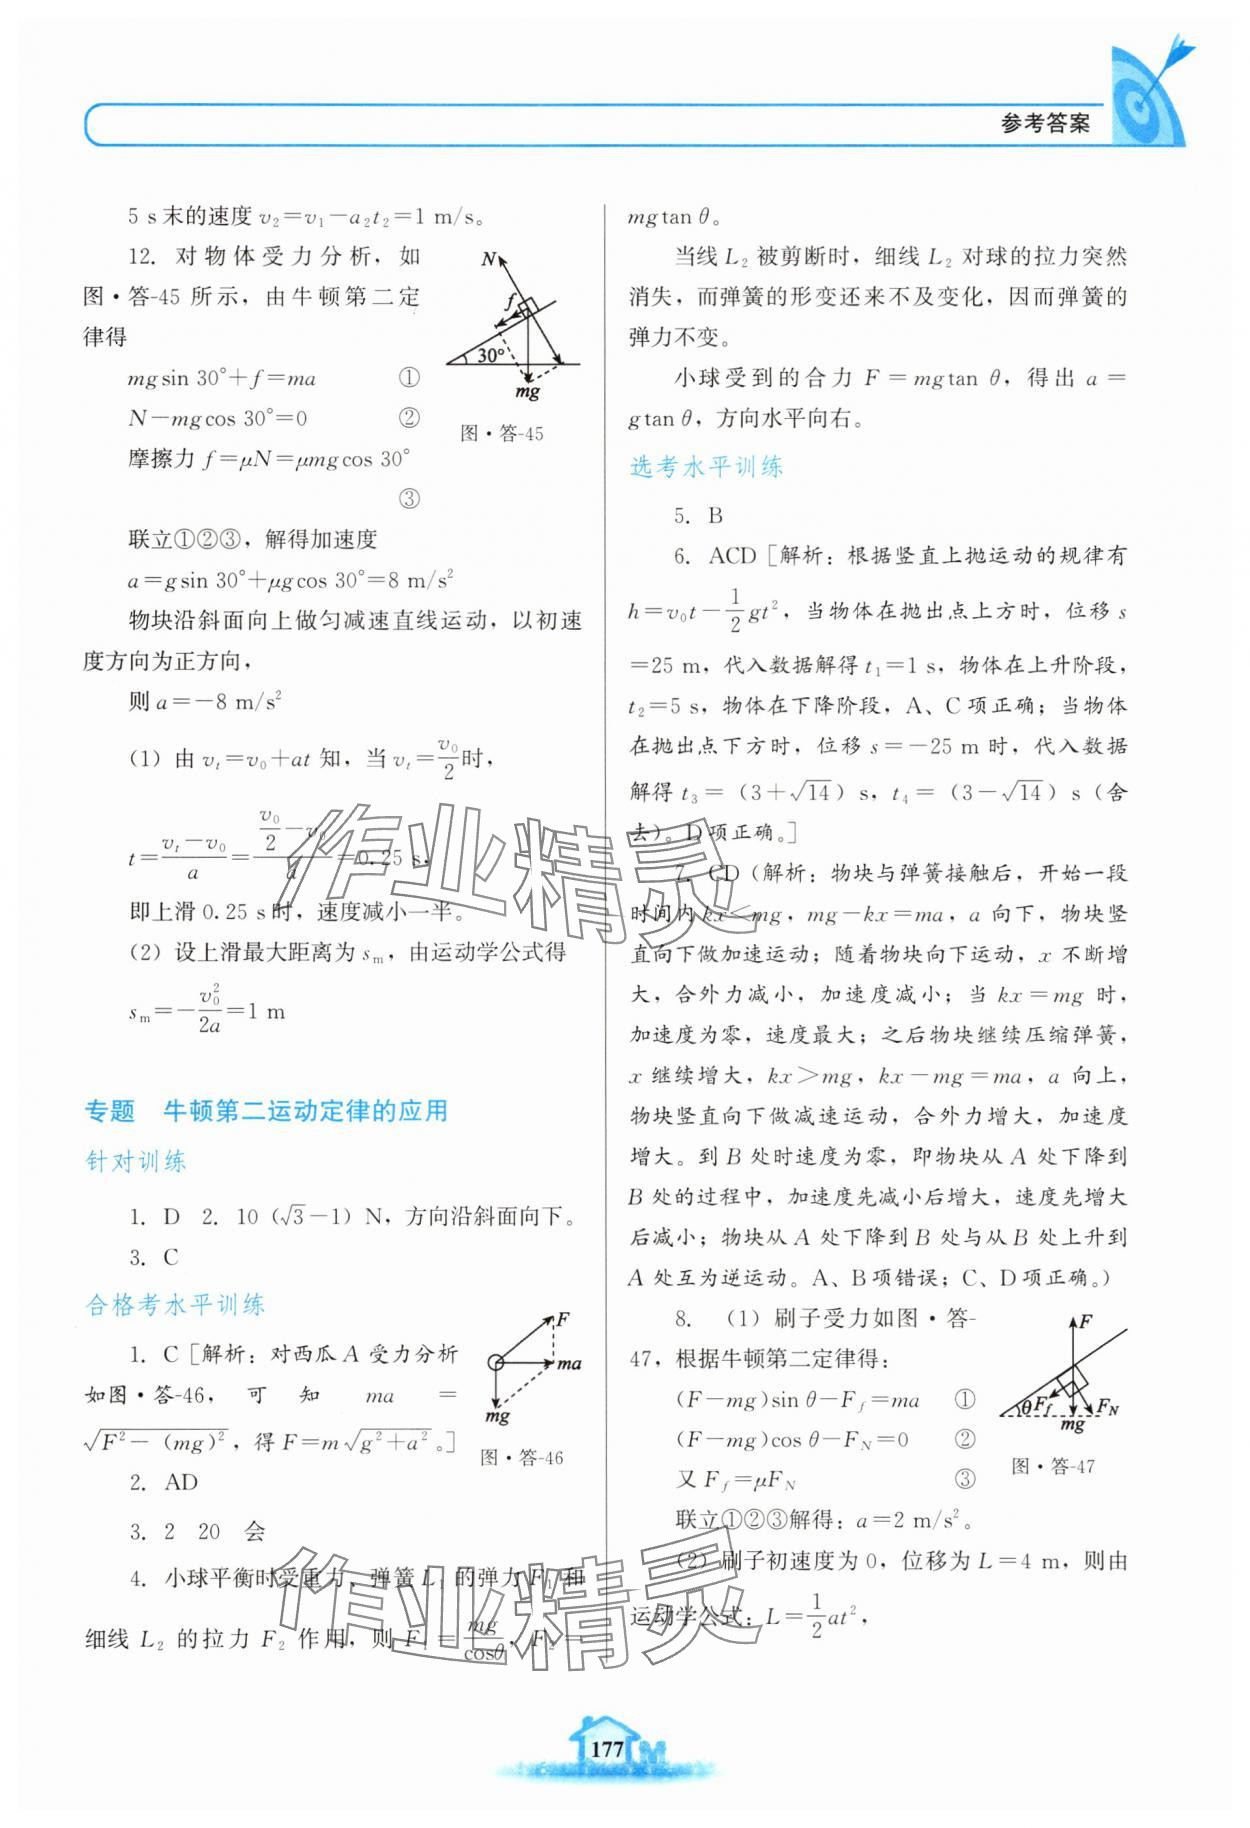 参考答案
5 s末的速度 v₂=v₁-a₂t₂=1 m/s。
12. 对物体受力分析，如
图·答-45 所示，由牛顿第二定
律得
mgsin 30°+f=ma ①
N-mgcos 30°=0 ②
摩擦力 f=μN=μmgcos 30°
③
N
f
30°
mg
图·答-45
联立①②③，解得加速度
a=gsin 30°+μgcos 30°=8 m/s²
物块沿斜面向上做匀减速直线运动，以初速
度方向为正方向，
则 a=-8 m/s²
(1) 由 vₜ=v₀+at 知，当 vₜ=v₀/2时，
t=(vₜ-v₀)/a=(v₀/2-v₀)/a=0.25 s，
即上滑 0.25 s时，速度减小一半。
(2) 设上滑最大距离为 sₘ，由运动学公式得
sₘ=-v₀²/2a=1 m
专题 牛顿第二运动定律的应用
针对训练
1. D 2. 10（√3-1）N，方向沿斜面向下。
3. C
合格考水平训练
1. C［解析：对西瓜 A 受力分析
如图·答-46，可知 ma =
√(F²-(mg)²)，得 F=m√(g²+a²)。］
F
ma
mg
图·答-46
2. AD
3. 2 20 会
4. 小球平衡时受重力、弹簧 L₁ 的弹力 F₁ 和
细线 L₂ 的拉力 F₂ 作用，则 F₁=mg/cosθ，F₂=
mgtan θ。
当线 L₂ 被剪断时，细线 L₂ 对球的拉力突然
消失，而弹簧的形变还来不及变化，因而弹簧的
弹力不变。
小球受到的合力 F=mgtan θ，得出 a=
gtan θ，方向水平向右。
选考水平训练
5. B
6. ACD［解析：根据竖直上抛运动的规律有
h=v₀t-1/2gt²，当物体在抛出点上方时，位移 s
=25 m，代入数据解得 t₁=1 s，物体在上升阶段，
t₂=5 s，物体在下降阶段，A、C 项正确；当物体
在抛出点下方时，位移 s=-25 m 时，代入数据
解得 t₃=（3+√14）s，t₄=（3-√14）s（舍
去）。D 项正确。］
7. CD（解析：物块与弹簧接触后，开始一段
时间内 kx<mg，mg-kx=ma，a 向下，物块竖
直向下做加速运动；随着物块向下运动，x 不断增
大，合外力减小，加速度减小；当 kx=mg 时，
加速度为零，速度最大；之后物块继续压缩弹簧，
x 继续增大，kx>mg，kx-mg=ma，a 向上，
物块竖直向下做减速运动，合外力增大，加速度
增大。到 B 处时速度为零，即物块从 A 处下降到
B 处的过程中，加速度先减小后增大，速度先增大
后减小；物块从 A 处下降到 B 处与从 B 处上升到
A 处互为逆运动。A、B 项错误；C、D 项正确。）
8. （1）刷子受力如图·答-
47，根据牛顿第二定律得：
(F-mg)sin θ-F_f=ma ①
(F-mg)cos θ-F_N=0 ②
又 F_f=μF_N ③
F
θ
F_f
F_N
mg
图·答-47
联立①②③解得：a=2 m/s²。
(2) 刷子初速度为 0，位移为 L=4 m，则由
运动学公式：L=1/2at²，
作业精灵
作业精灵
177